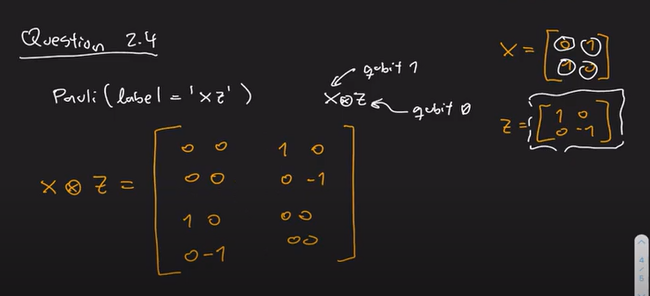 Question 2.4
Pauli(label = 'XZ')
qubit 1
X⊗Z
qubit 0
X = [0 1
1 0]
Z = [1 0
0 -1]
X ⊗ Z =
0 0 1 0
0 0 0 -1
1 0 0 0
0 -1 0 0
4
/
5